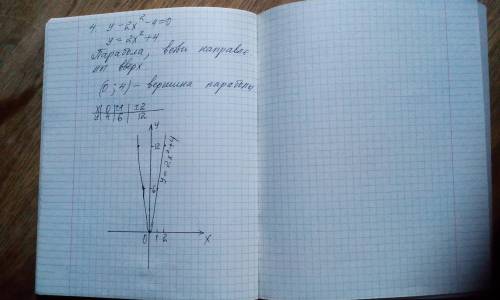 4. y - 2x² - 4 = 0
y = 2x² + 4
Парабола, ветви направле
ны вверх.
(0; 4) - вершина параболы
x | 0 | ±1 | ±2
y | 4 | 6 | 12
y
12
y = 2x² + 4
6
0 1 2 x